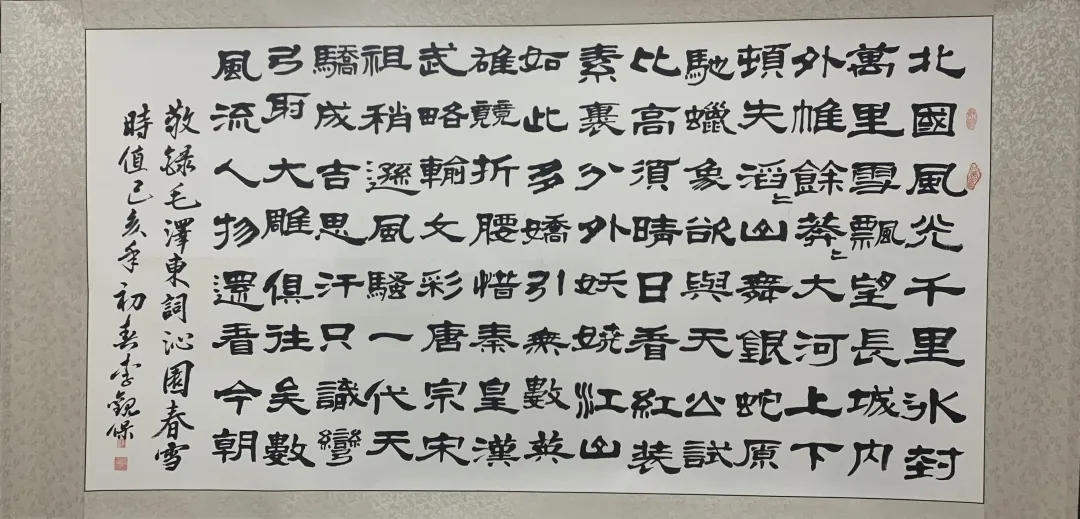 北國風光千里冰封
萬里雪飄望長城內
外惟餘莽〻大河上下
頓失滔〻山舞銀蛇原
馳蠟象欲與天公試
比高須晴日看紅装
素裹分外妖嬈江山
如此多嬌引無數英
雄競折腰惜秦皇漢
武略輸文彩唐宗宋
祖稍遜風騷一代天
驕成吉思汗只識彎
弓射大雕俱往矣數
風流人物還看今朝
敬録毛澤東詞沁園春雪
時值己亥年初春李觀保